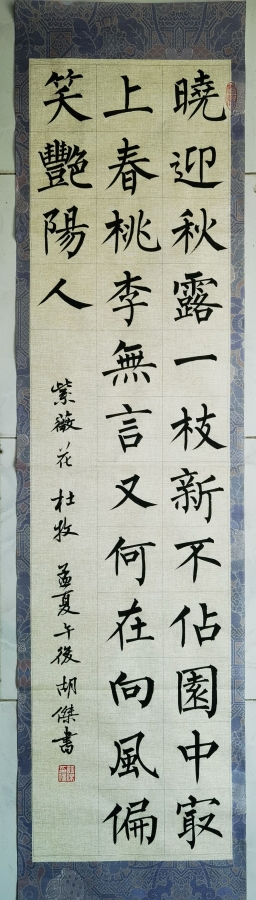 曉迎秋露一枝新不佔園中㝡
上春桃李無言又何在向風偏
笑艷陽人
紫薇花 杜牧 孟夏午後胡傑書